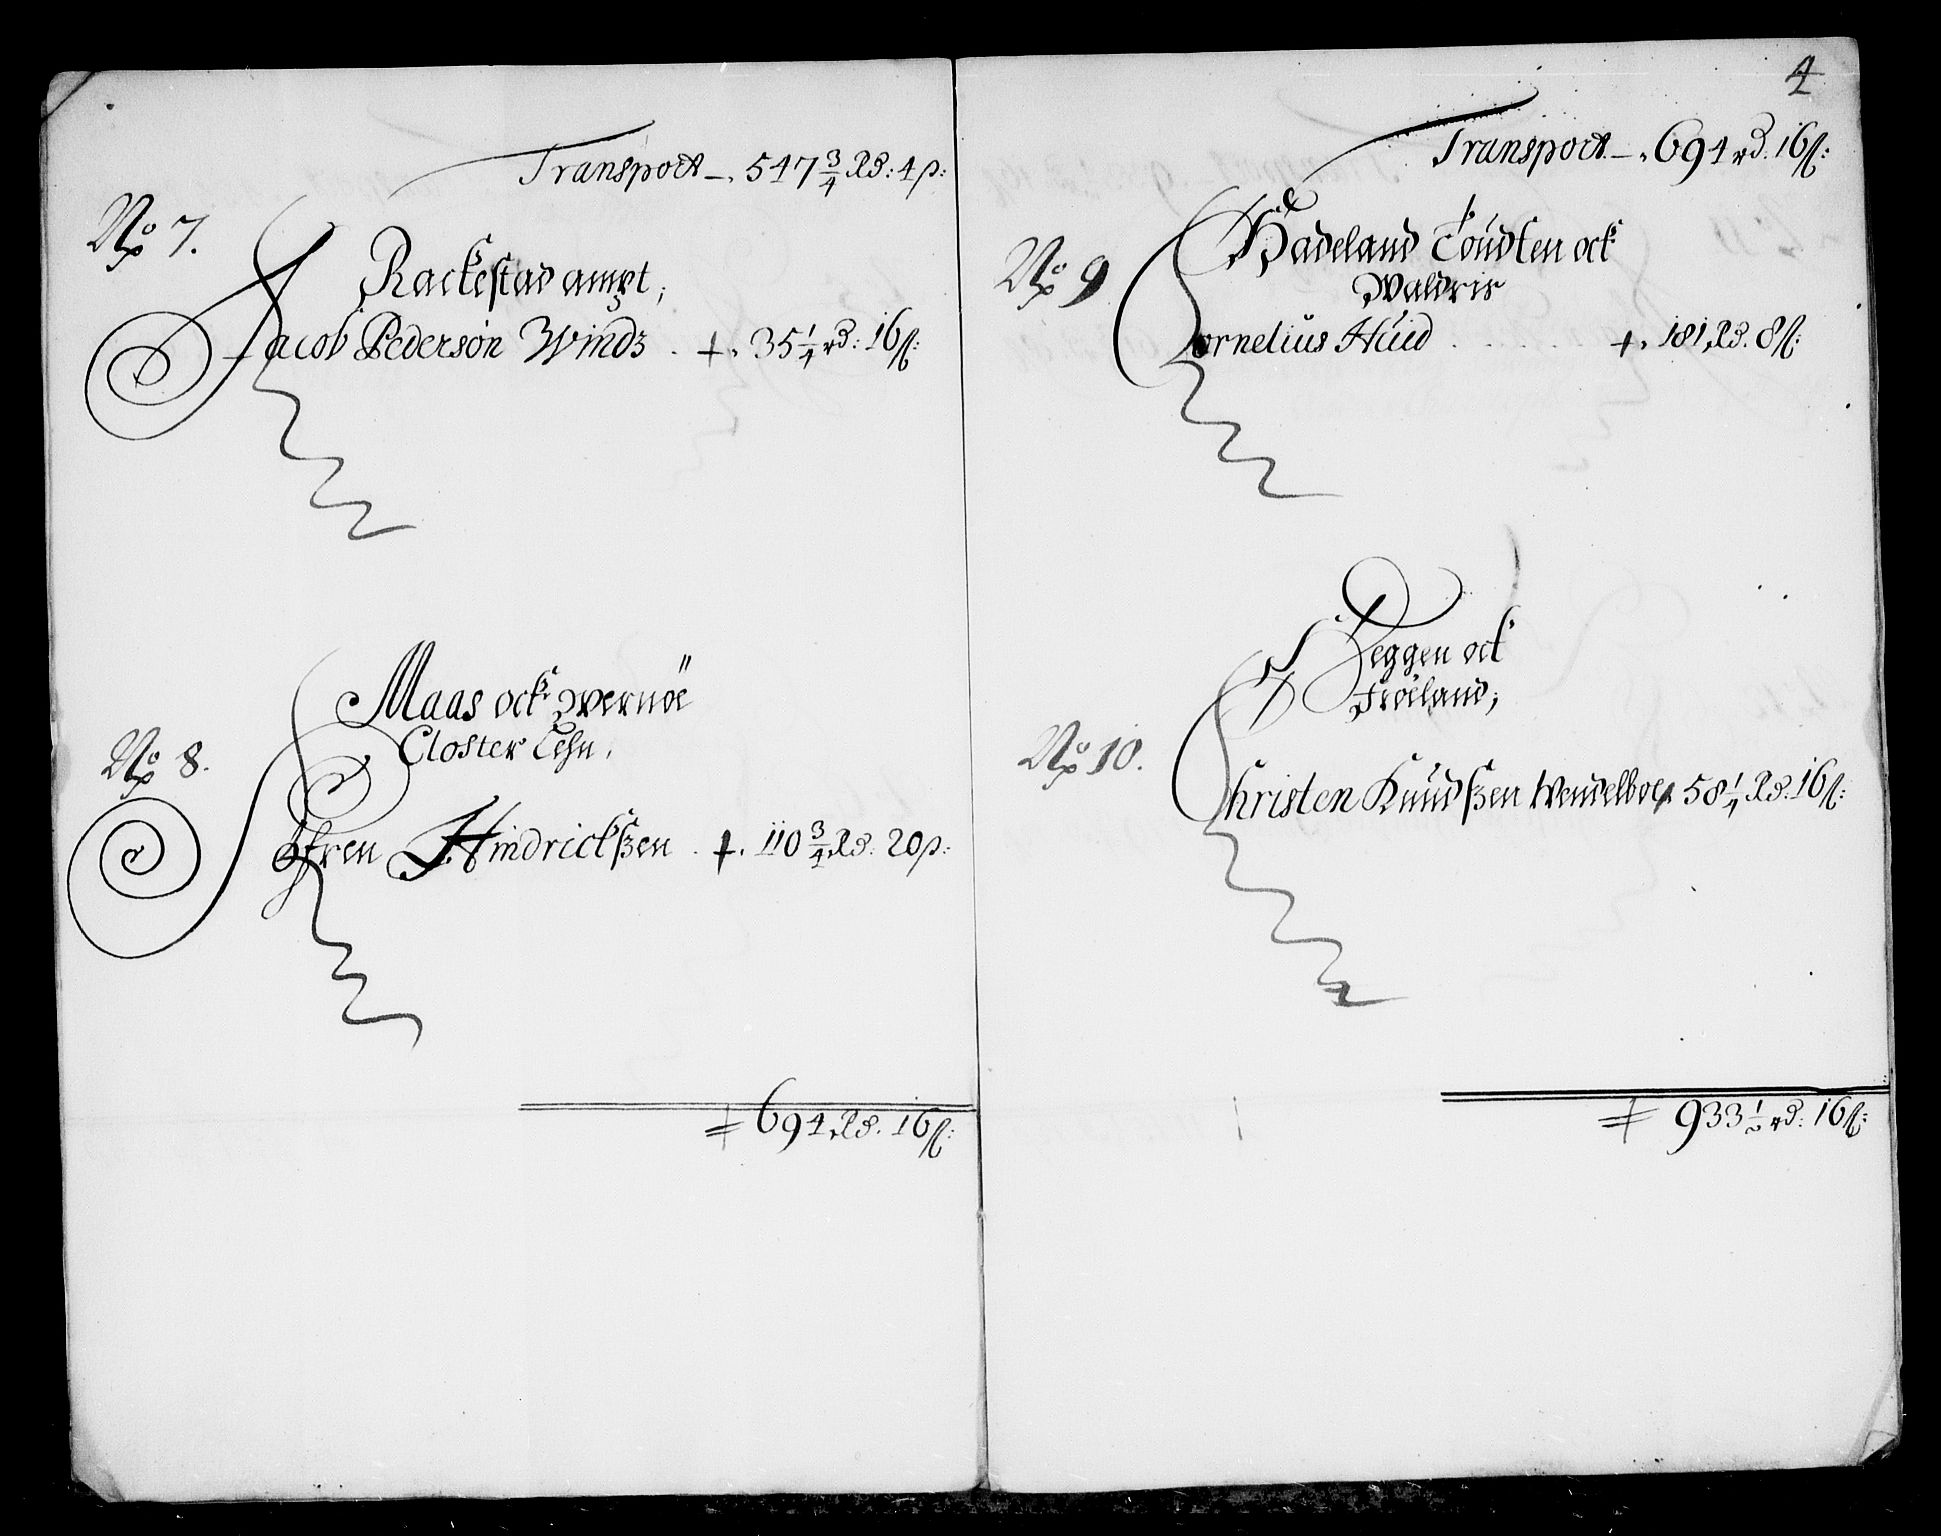 Transport – 547 3/4 Rd: 4 ß:
No 7.
Rackestad ampt;
Jacob Pedersøn Windz . + . 35 1/4 rd: 16 ß:
Maas ock Wernöe
No 8.
Closter Lehn.
Ifren Hindrickßen . + . 110 3/4 Rd: 20 ß:
= 694 Rd. 16 ß:
4
Transport – 694 rd. 16 ß:
Hadeland Toudten ock
No 9
Waldris
Cornelius Hüid . . . . . + . 181 Rd. 8 ß:
Heggen ock
Fröeland;
No 10.
Christen Knudßen Wendelboe 58 1/4 Rd. 16 ß:
= 933 1/2 rd: 16 ß: